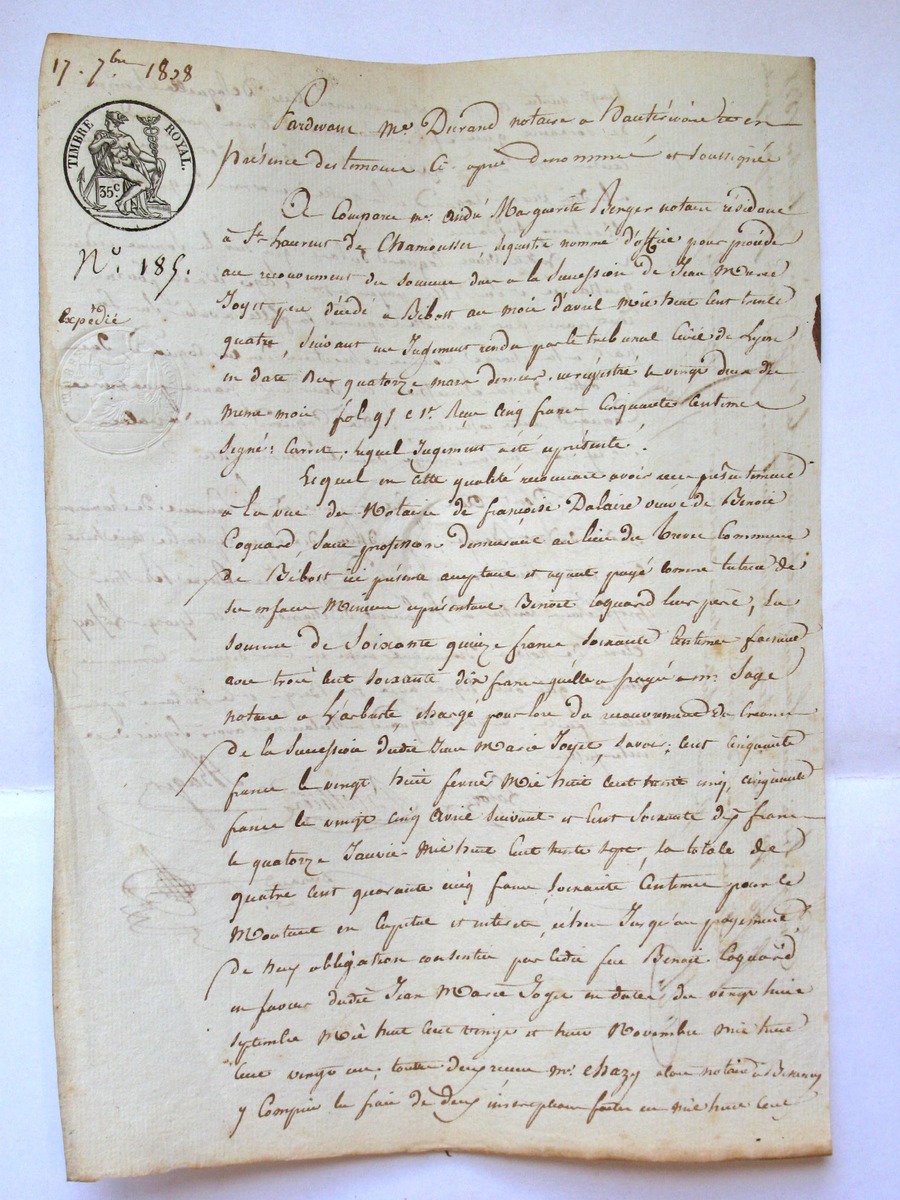 17. 7bre 1838
TIMBRE ROYAL.
35 c.
No. 185.
Expédié
Pardevant Me Durand notaire a hauterivoire et en
présence des temoins ci-après denommés et soussignés
A Comparu mr. André Marguerite Berger notaire résidant
à St. Laurent de Chamousset séquestre nommé d'office pour proceder
au recouvrement des sommes dues a la Succession de Jean Marie
Joyet decédé a Bibost au mois d'avril mil huit cent trente
quatre, suivant un Jugement rendu par le tribunal Civil de Lyon
en date du quatorze mars dernier, enregistré le vingt deux du
meme mois fol 95 c 1r. Reçu cinq francs cinquante centimes
Signé: Carret, Lequel Jugement a été représenté.
Lequel en cette qualité reconnait avoir reçu présentement
a la vue du Notaire de françoise Dalaire veuve de Benoit
Coquard, sans profession demeurant au lieu du commune
de Bibost ici présente acceptante et ayant payé comme tutrice de
ses enfans Mineurs représentant Benoit Coquard leur père, La
somme de Soixante quinze francs soixante Centimes faisant
avec trois cent soixante dix francs qu'elle a payé a mr. Sage
notaire a L'arbresle, chargé pour lors du recouvrement des Creances
de la Succession dudit Jean Marie Joyet, Savoir: Cent cinquante
francs le vingt huit fevrier Mil huit Cent trente cinq, cinquante
francs le vingt cinq Avril Suivant et Cent Soixante dix francs
le quatorze Janvier Mil huit Cent trente Sept, la totale de
quatre cent quarante cinq francs Soixante Centimes pour le
Montant en Capital et interets échus Jusqu'au payement
de deux obligations consenties par ledit feu Benoit Coquard
en faveur dudit Jean Marie Joyet en dates du vingt huit
septembre Mil huit Cent vingt et huit Novembre mil huit
Cent vingt un, toutes deux reçues Mr. Chazy alors notaire à Bessenay
y Compris les frais de deux inscriptions faites en mil huit Cent